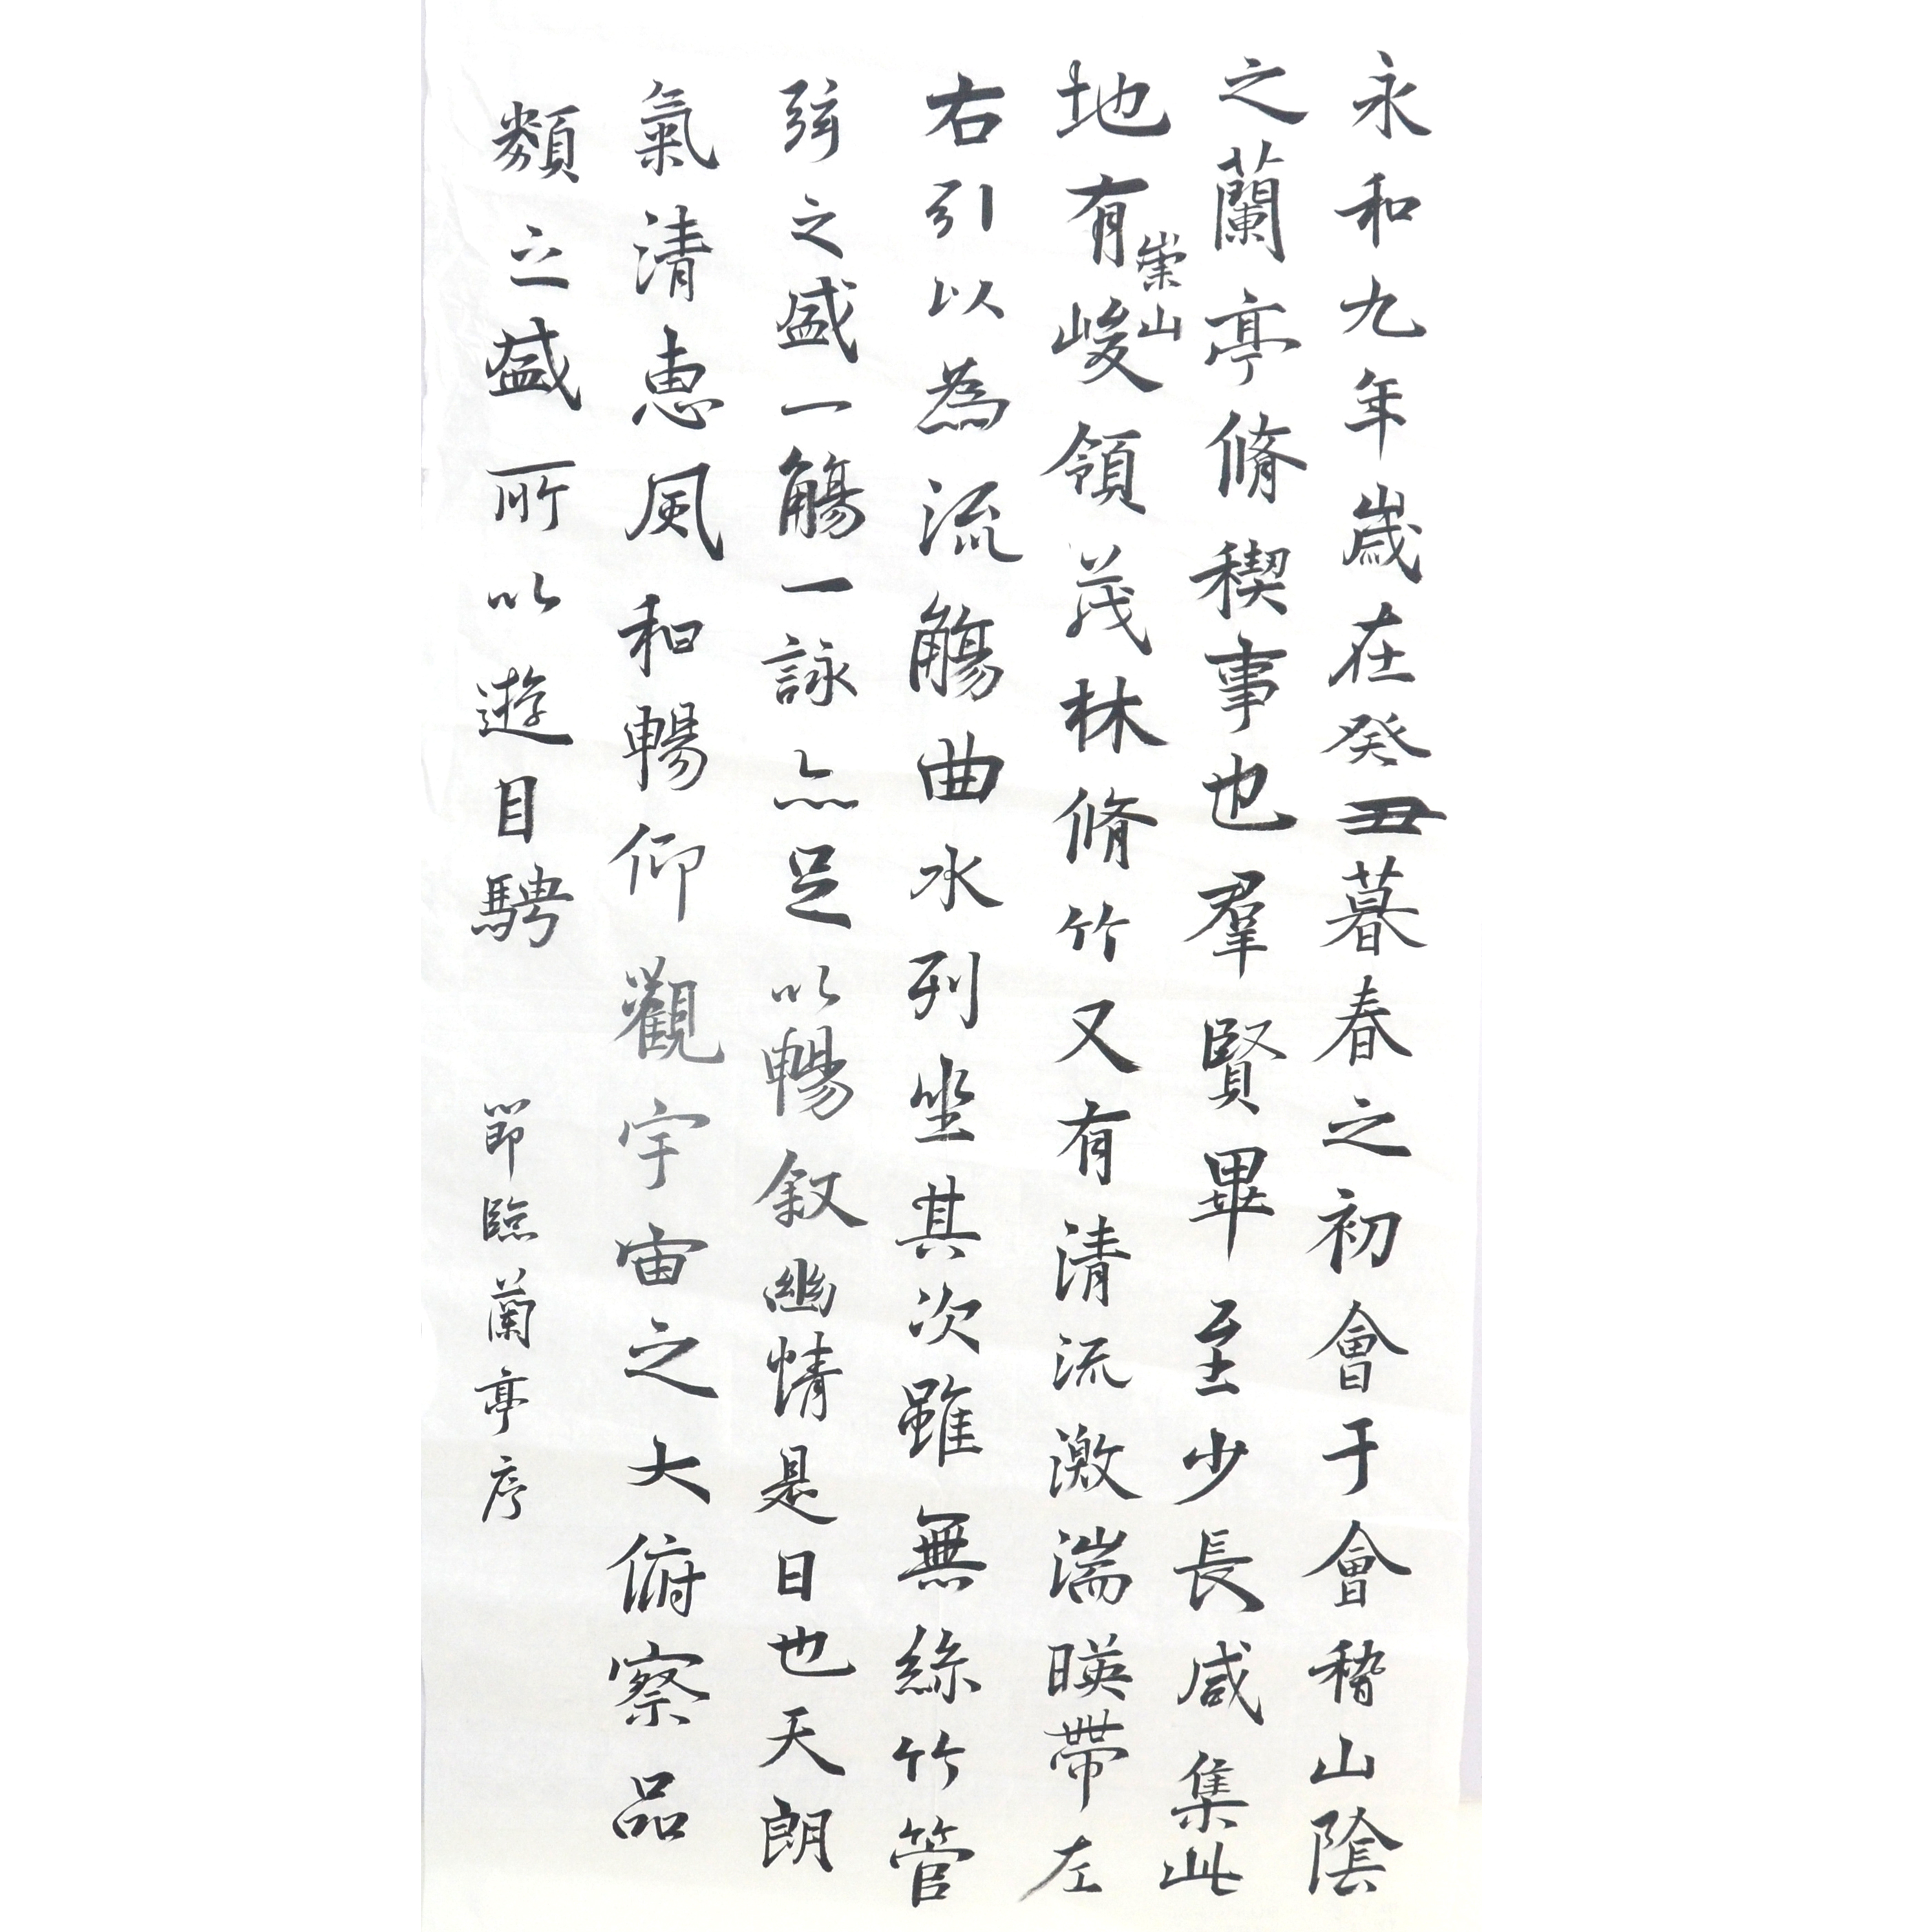 永和九年歲在癸丑暮春之初會于會稽山陰
之蘭亭脩稧事也羣賢畢至少長咸集此
地有崇山峻領茂林脩竹又有清流激湍暎帶左
右引以為流觴曲水列坐其次雖無絲竹管
弦之盛一觴一詠亦足以暢敘幽情是日也天朗
氣清惠風和暢仰觀宇宙之大俯察品
類之盛所以遊目騁
節臨蘭亭序